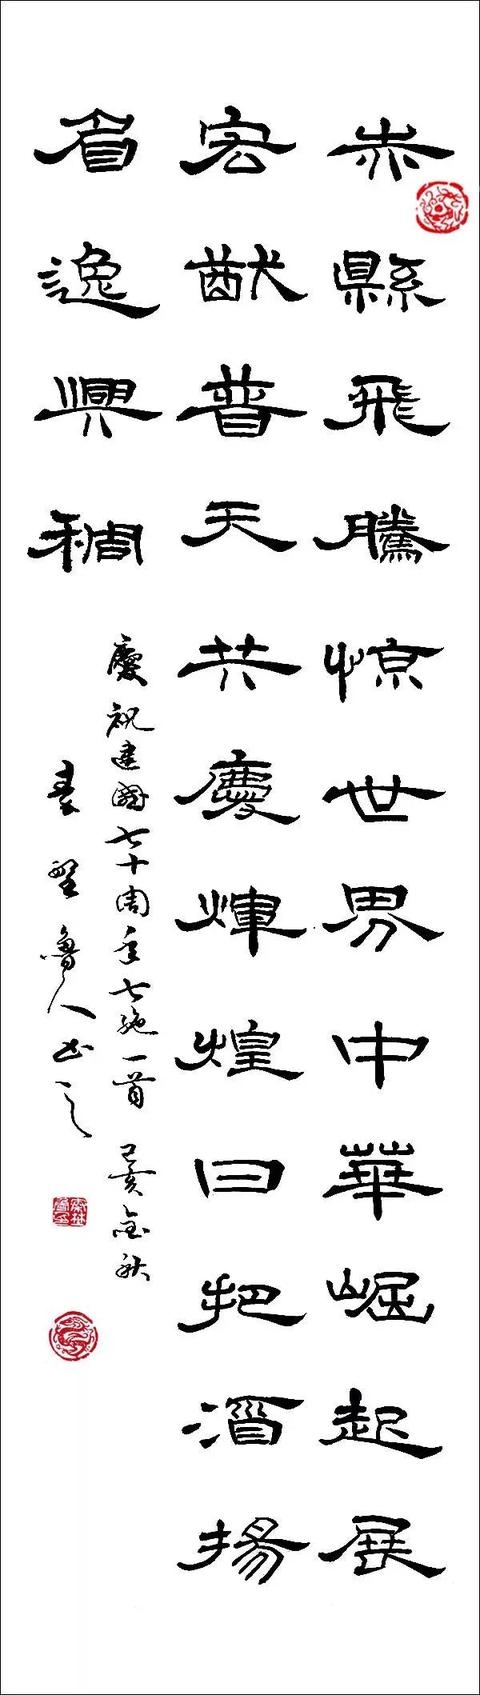 赤縣飛騰惊世界中華崛起展
宏猷普天共慶煇煌日把酒揚
眉逸興稠
慶祝建國七十周年七绝一首 己亥金秋
魯人书之